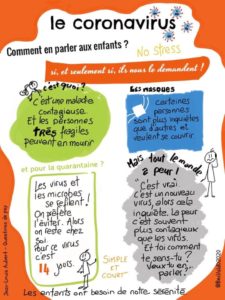 le coronavirus
Comment en parler aux enfants ?
No stress
si, et seulement si, ils nous le demandent !
c'est quoi ?
C'est une maladie
contagieuse.
Et les personnes
TRÈS fragiles
peuvent en mourir
Les masques
certaines
personnes
sont plus inquiètes
que d'autres et
veulent se couvrir
et pour la quarantaine ?
Les virus et
les microbes
se refilent !
On préfère
l'éviter. Alors
on reste chez
soi.
Pour ce virus
c'est
14 jours
SIMPLE
ET
COURT
Mais tout le monde
a peur !
C'est vrai.
c'est un nouveau
virus, alors cela
inquiète. La peur
c'est souvent
plus contagieux
que les virus.
Et toi comment
te sens-tu ?
Veux-tu en
parler ?
Les enfants ont besoin de notre sérénité